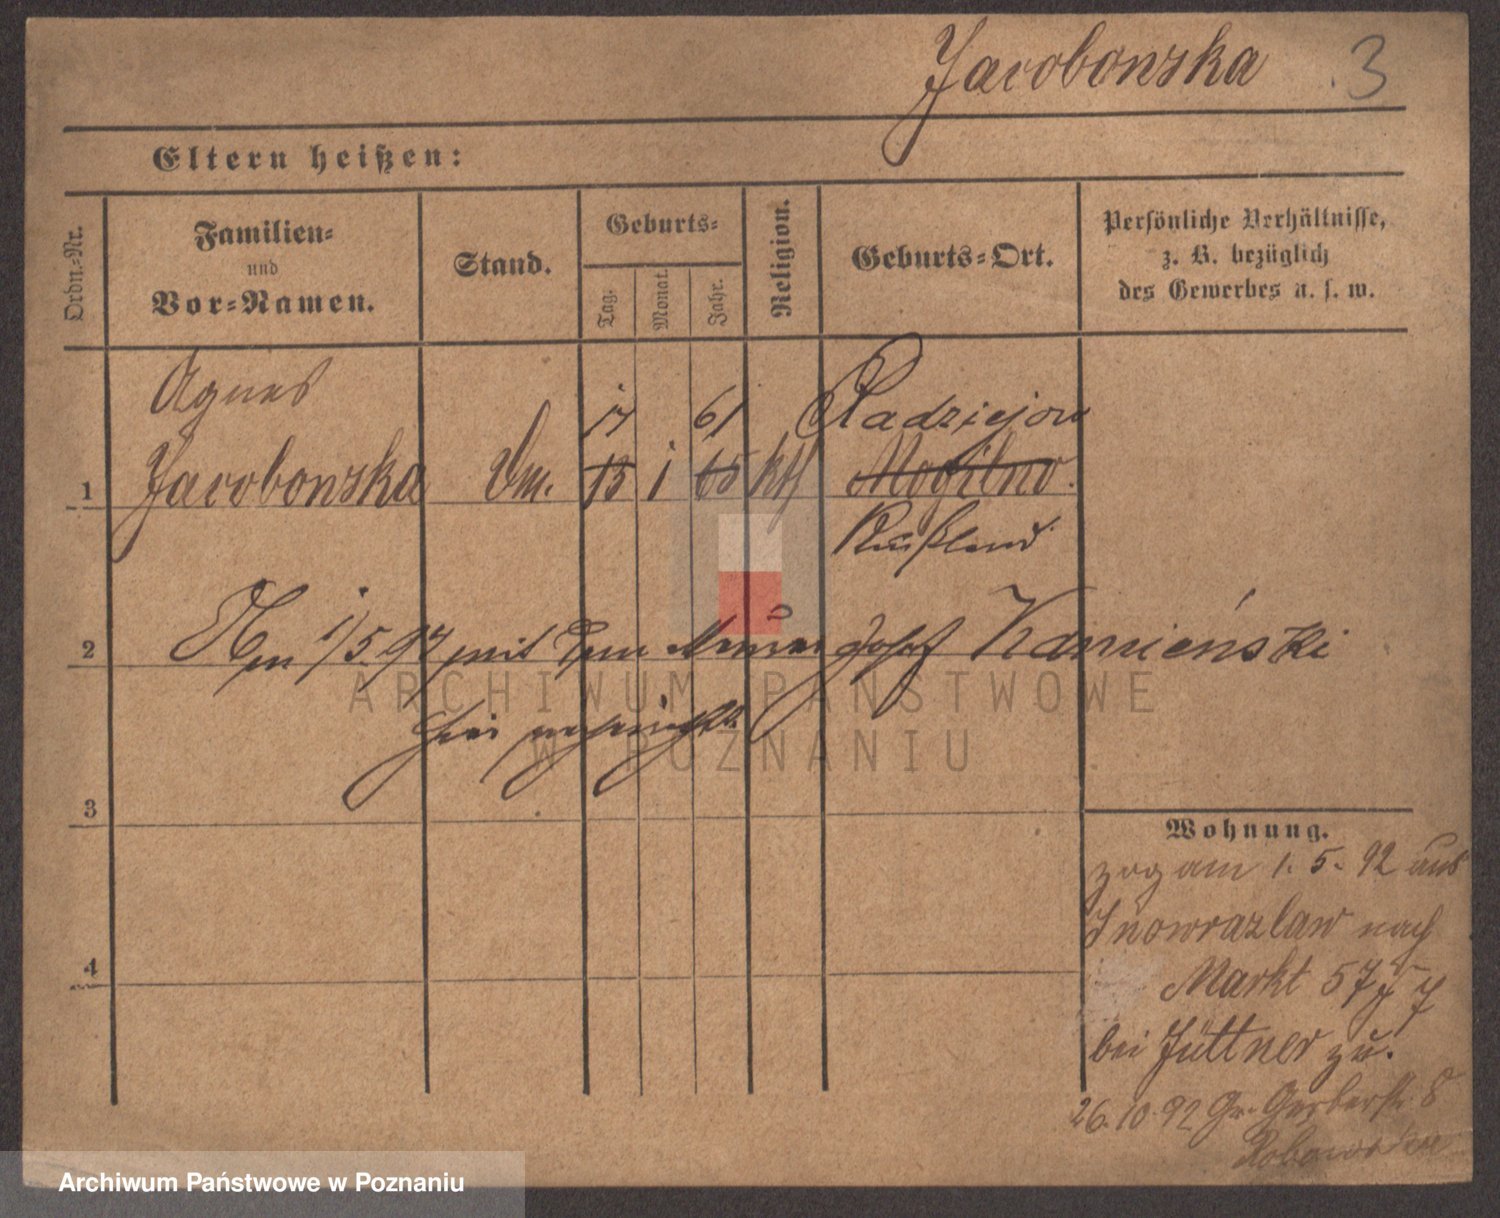 Jacobowska 3
Eltern heißen:
Ordn.-Nr.
Familien-
und
Vor-Namen.
Stand.
Geburts-
Tag.
Monat.
Jahr.
Religion.
Geburts-Ort.
Persönliche Verhältnisse,
z. B. bezüglich
des Gewerbes u. s. w.
Agnes
17 61 Radziejow
1 Jacobowska 13 1 65 kth Mogilno.
Rußland
2 Am 1/5. 97 mit dem Maurer Josef Kamieński
ARCHIWUM PAŃSTWOWE
W POZNANIU
3
4
Wohnung.
zog am 1. 5. 92 aus
Inowrazlaw nach
Markt 57
bei Jüttner zu.
26. 10. 92 Gr. Gerberstr. 8
Archiwum Państwowe w Poznaniu